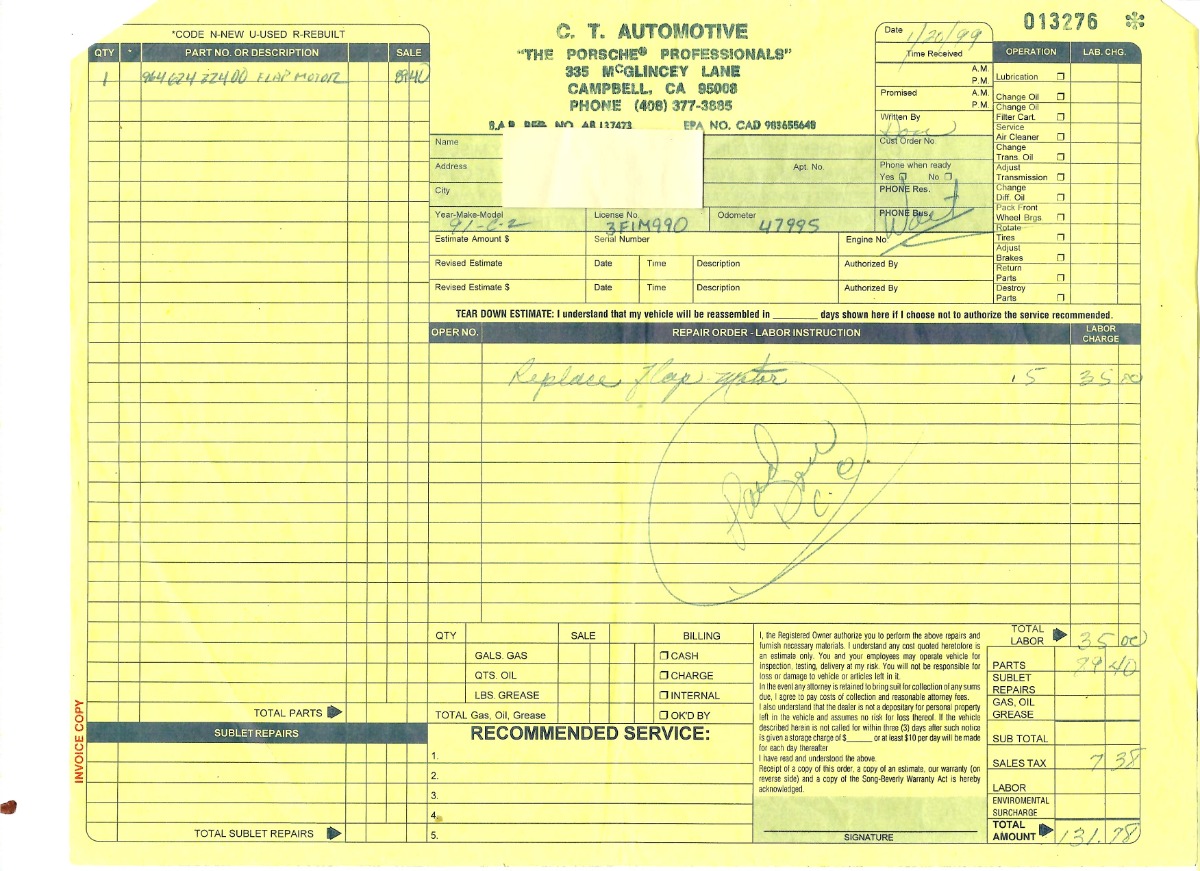 *CODE N-NEW U-USED R-REBUILT
QTY * PART NO. OR DESCRIPTION SALE
1 964 624 324 00 FLAP MOTOR 89 40
C. T. AUTOMOTIVE
"THE PORSCHE® PROFESSIONALS"
335 McGLINCEY LANE
CAMPBELL, CA 95008
PHONE (408) 377-3885
B.A.R. REG. NO. AB 137473 EPA NO. CAD 983655648
Date 1/20/99
Time Received
A.M.
P.M.
Promised A.M.
P.M.
Written By
Cust Order No.
Phone when ready
Yes No
PHONE Res.
PHONE Bus.
013276 *
OPERATION LAB. CHG.
Lubrication
Change Oil
Change Oil
Filter Cart.
Service
Air Cleaner
Change
Trans. Oil
Adjust
Transmission
Change
Diff. Oil
Pack Front
Wheel Brgs
Rotate
Tires
Adjust
Brakes
Return
Parts
Destroy
Parts
Name
Address Apt. No.
City
Year-Make-Model License No. Odometer
91-C-2 3FIM990 47995
Estimate Amount $ Serial Number Engine No
Revised Estimate Date Time Description Authorized By
Revised Estimate $ Date Time Description Authorized By
TEAR DOWN ESTIMATE: I understand that my vehicle will be reassembled in ________ days shown here if I choose not to authorize the service recommended.
OPER NO. REPAIR ORDER - LABOR INSTRUCTION LABOR CHARGE
Replace Flap motor .5 35 00
QTY SALE BILLING
GALS. GAS CASH
QTS. OIL CHARGE
LBS. GREASE INTERNAL
TOTAL Gas, Oil, Grease OK'D BY
TOTAL PARTS
SUBLET REPAIRS
TOTAL SUBLET REPAIRS
INVOICE COPY
RECOMMENDED SERVICE:
1.
2.
3.
4.
5.
I, the Registered Owner authorize you to perform the above repairs and
furnish necessary materials. I understand any cost quoted heretofore is
an estimate only. You and your employees may operate vehicle for
inspection, testing, delivery at my risk. You will not be responsible for
loss or damage to vehicle or articles left in it.
In the event any attorney is retained to bring suit for collection of any sums
due, I agree to pay costs of collection and reasonable attorney fees.
I also understand that the dealer is not a depositary for personal property
left in the vehicle and assumes no risk for loss thereof. If the vehicle
described herein is not called for within three (3) days after such notice
is given a storage charge of $______ or at least $10 per day will be made
for each day thereafter
I have read and understood the above.
Receipt of a copy of this order, a copy of an estimate, our warranty (on
reverse side) and a copy of the Song-Beverly Warranty Act is hereby
acknowledged.
SIGNATURE
TOTAL LABOR 35 00
PARTS 89 40
SUBLET REPAIRS
GAS, OIL GREASE
SUB TOTAL
SALES TAX 7 38
LABOR
ENVIROMENTAL SURCHARGE
TOTAL AMOUNT 131.78